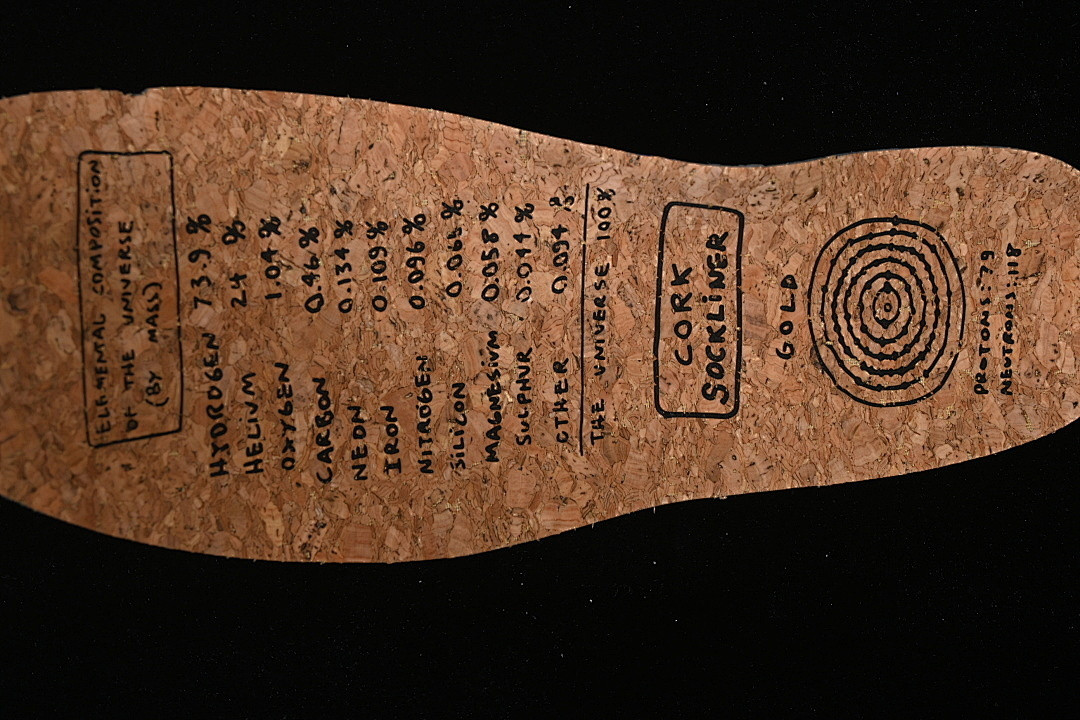 ELEMEMAL COMPOSITION
OF THE UNIVERSE
(BY MASS)
HYDROGEN 73.9 %
HELIUM 24 %
OXYGEN 1.04 %
CARBON 0.46 %
NEON 0.134 %
IRON 0.109 %
NITROGEN 0.096 %
SILICON 0.065 %
MAGNESIUM 0.058 %
SULPHUR 0.044 %
OTHER 0.094 %
THE UNIVERSE 100 %
CORK
SOCKLINER
GOLD
PROTONS:79
NEUTRONS:118